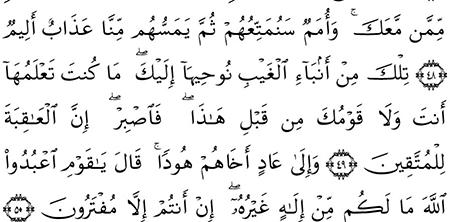 مِّمَّن مَّعَكَۚ وَأُمَمٞ سَنُمَتِّعُهُمۡ ثُمَّ يَمَسُّهُم مِّنَّا عَذَابٌ أَلِيمٞ
۝٤٨ تِلۡكَ مِنۡ أَنۢبَآءِ ٱلۡغَيۡبِ نُوحِيهَآ إِلَيۡكَۖ مَا كُنتَ تَعۡلَمُهَآ
أَنتَ وَلَا قَوۡمُكَ مِن قَبۡلِ هَٰذَاۖ فَٱصۡبِرۡۖ إِنَّ ٱلۡعَٰقِبَةَ
لِلۡمُتَّقِينَ ۝٤٩ وَإِلَىٰ عَادٍ أَخَاهُمۡ هُودٗاۚ قَالَ يَٰقَوۡمِ ٱعۡبُدُواْ
ٱللَّهَ مَا لَكُم مِّنۡ إِلَٰهٍ غَيۡرُهُۥٓۖ إِنۡ أَنتُمۡ إِلَّا مُفۡتَرُونَ ۝٥٠